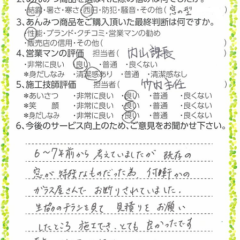 結露・暑さ・寒さ・防犯・騒音・その他(窓の型)
3.あんみつ商品をご購入頂いた最終判断は何ですか。
性能・ブランド・クチコミ・営業マンの勧め
販売店の信用・その他(
4.営業マンの評価 担当者(内山課長
・非常に良い・良い・普通・良くない
*身だしなみ ・清潔感あり・普通・清潔感なし
5.施工技師評価 担当者(竹内主任
*あいさつ ・非常に良い・良い・普通・良くない
*笑顔 ・非常に良い・良い・普通・良くない
*身だしなみ ・非常に良い・良い・普通・良くない
6.今後のサービス向上のため、ご意見をお聞かせ下さい。
6~7年前から考えていましたが 既存の
窓が特殊なものだった為、何軒かの
ガラス屋さんで お断りされていました。
生協のチラシを見て 見積りを お願い
したところ、施工でき、とても 良かったです